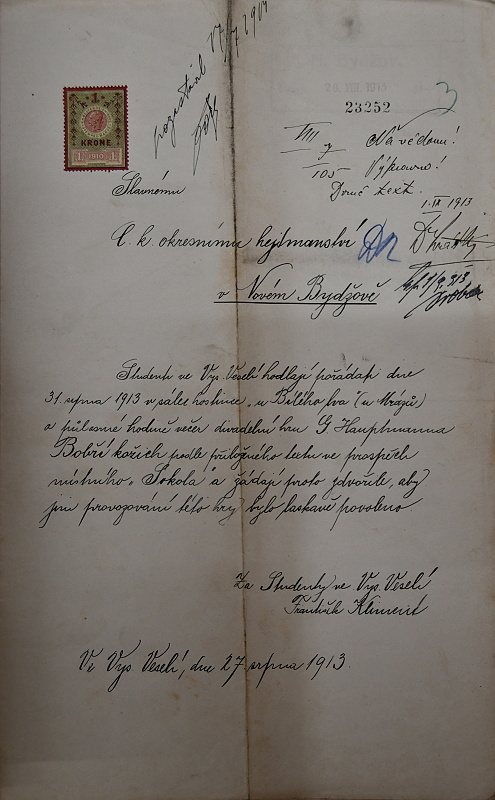 1
KRONE
1 1910 1
28. SEP. 1913
23252
3
VIII
7
105
Na vědomí!
Výpravno!
text.
1. IX 1913
Slavnému
C. k. okresnímu hejtmanství
v Novém Bydžově
Studenti ve Vys. Veselí hodlají pořádati dne
31. srpna 1913 v sále hostince „u Bílého lva" (u Mrázů)
o půlosmé hodině večer divadelní hru G. Hauptmanna
Bobří kožich podle přiloženého textu ve prospěch
místního „Sokola" a žádají proto zdvořile, aby
jim provozování této hry bylo laskavě povoleno.
Za Studenty ve Vys. Veselí
František Kliment
Ve Vys. Veselí, dne 27. srpna 1913.